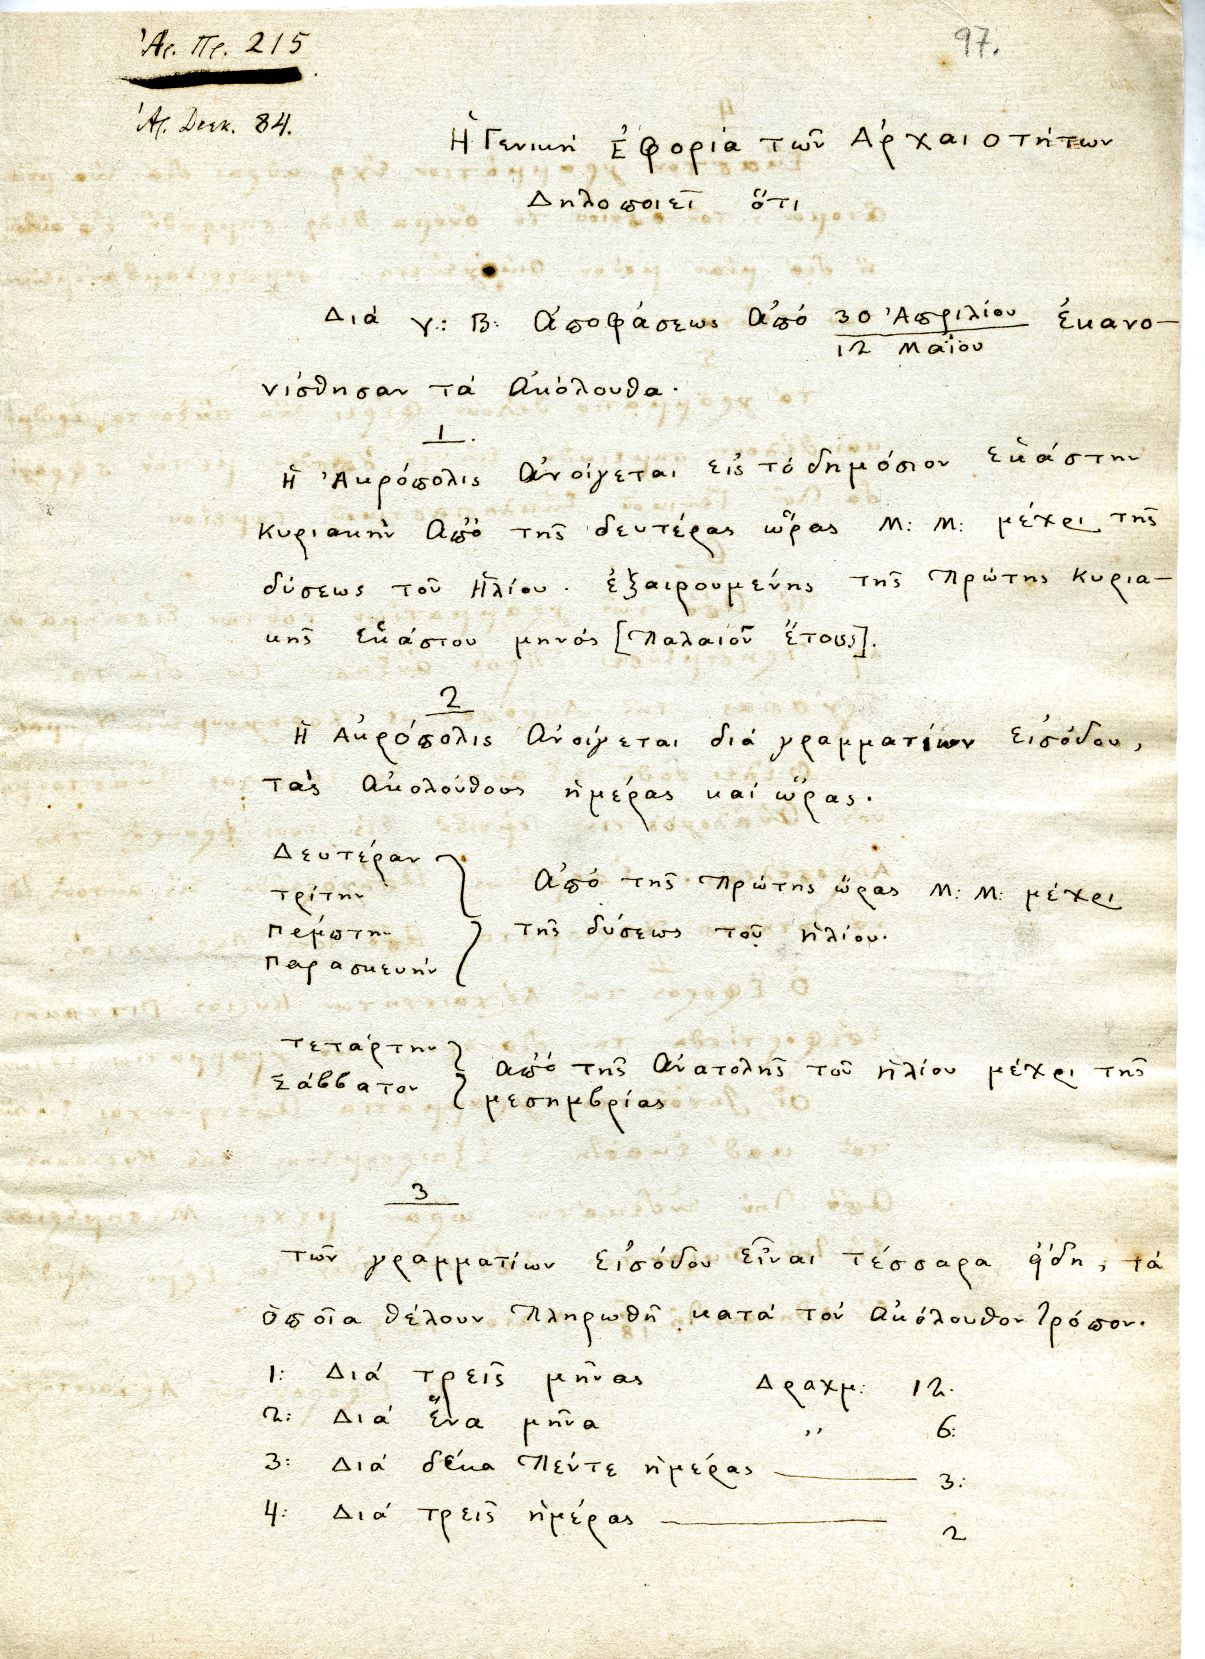 Ἀρ. Πρ. 215
97.
Ἀρ. Διεκ. 84.
Ἡ Γενικὴ Ἐφορία τῶν Ἀρχαιοτήτων
Δηλοποιεῖ ὅτι
Διά γ: Β: Ἀποφάσεως Ἀπό 30 Ἀπριλίου / 12 Μαΐου ἐκανο-
νίσθησαν τά Ἀκόλουθα.
1.
Ἡ Ἀκρόπολις Ἀνοίγεται εἰς τό δημόσιον ἑκάστην
Κυριακὴν Ἀπό τῆς δευτέρας ὥρας Μ: Μ: μέχρι τῆς
δύσεως τοῦ Ἡλίου. ἐξαιρουμένης τῆς Πρώτης Κυρια-
κῆς ἑκάστου μηνός [Παλαιοῦ Ἔτους].
2
Ἡ Ἀκρόπολις Ἀνοίγεται διά γραμματίων εἰσόδου,
τὰς Ἀκολούθους ἡμέρας καί ὥρας.
Δευτέραν
τρίτην
Πέμπτην
Παρασκευήν
Ἀπό τῆς Πρώτης ὥρας Μ: Μ: μέχρι
τῆς δύσεως τοῦ ἡλίου.
τετάρτην
Σάββατον
Ἀπό τῆς Ἀνατολῆς τοῦ ἡλίου μέχρι τῆς
μεσημβρίας
3
τῶν γραμματίων εἰσόδου εἶναι τέσσαρα ἤδη, τά
ὁποῖα θέλουν Πληρωθῆ κατά τόν Ἀκόλουθον τρόπον.
1: Διά τρεῖς μῆνας Δραχμ: 12.
2: Διά ἕνα μῆνα ,, 6:
3: Διά δέκα Πέντε ἡμέρας — 3:
4: Διά τρεῖς ἡμέρας — 2